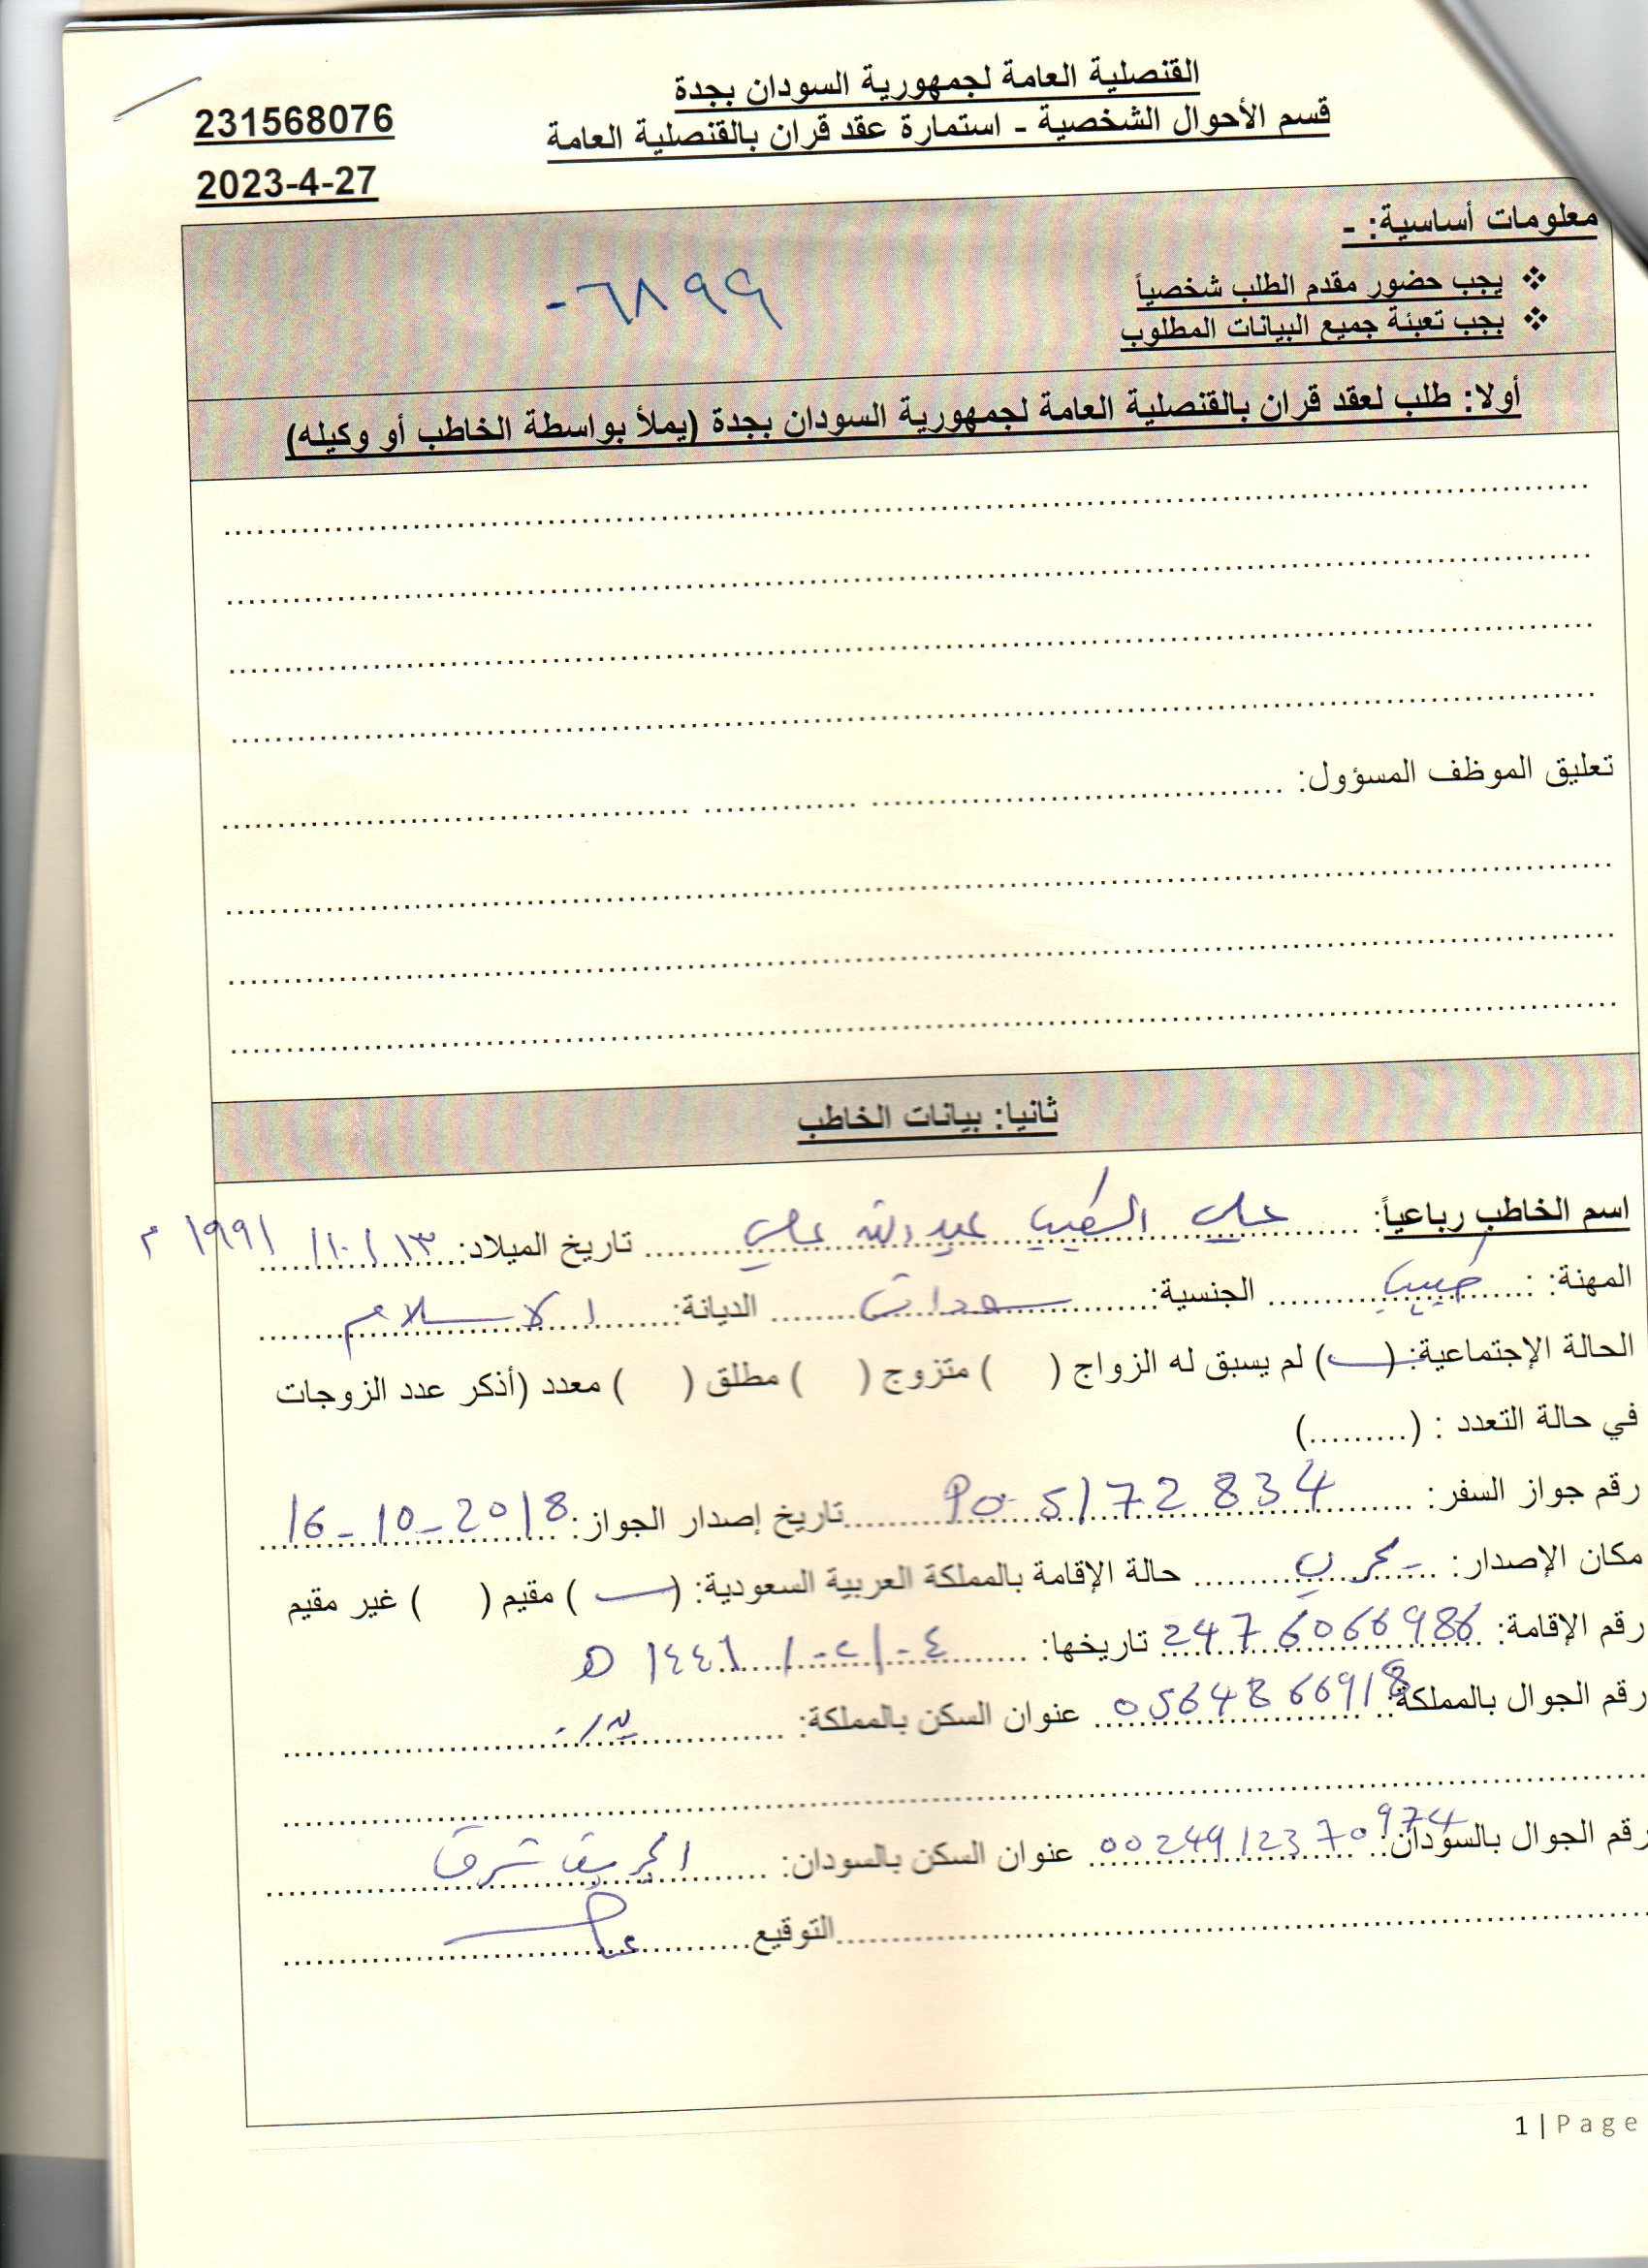 القنصلية العامة لجمهورية السودان بجدة
قسم الأحوال الشخصية - استمارة عقد قران بالقنصلية العامة
231568076
2023-4-27
معلومات أساسية: -
❖ يجب حضور مقدم الطلب شخصياً
❖ يجب تعبئة جميع البيانات المطلوب
٠٦٨٩٩
أولا: طلب لعقد قران بالقنصلية العامة لجمهورية السودان بجدة (يملأ بواسطة الخاطب أو وكيله)
تعليق الموظف المسؤول:
ثانيا: بيانات الخاطب
اسم الخاطب رباعياً: علي الطيب عبد الله علي تاريخ الميلاد: ١٣/١٠/١٩٩١ م
المهنة: طبيب الجنسية: سوداني الديانة: الاسلام
الحالة الإجتماعية: ( ) لم يسبق له الزواج ( ) متزوج ( ) مطلق ( ) معدد (أذكر عدد الزوجات
في حالة التعدد : (.........)
رقم جواز السفر: P05172834 تاريخ إصدار الجواز: 16-10-2018
مكان الإصدار: بحري حالة الإقامة بالمملكة العربية السعودية: ( ) مقيم ( ) غير مقيم
رقم الإقامة: 2476066986 تاريخها: ٠٤/٠٢/١٤٤٦ ه
رقم الجوال بالمملكة: 0564866918 عنوان السكن بالمملكة:
رقم الجوال بالسودان: 0024912370974 عنوان السكن بالسودان: شرق
التوقيع
1 | Page